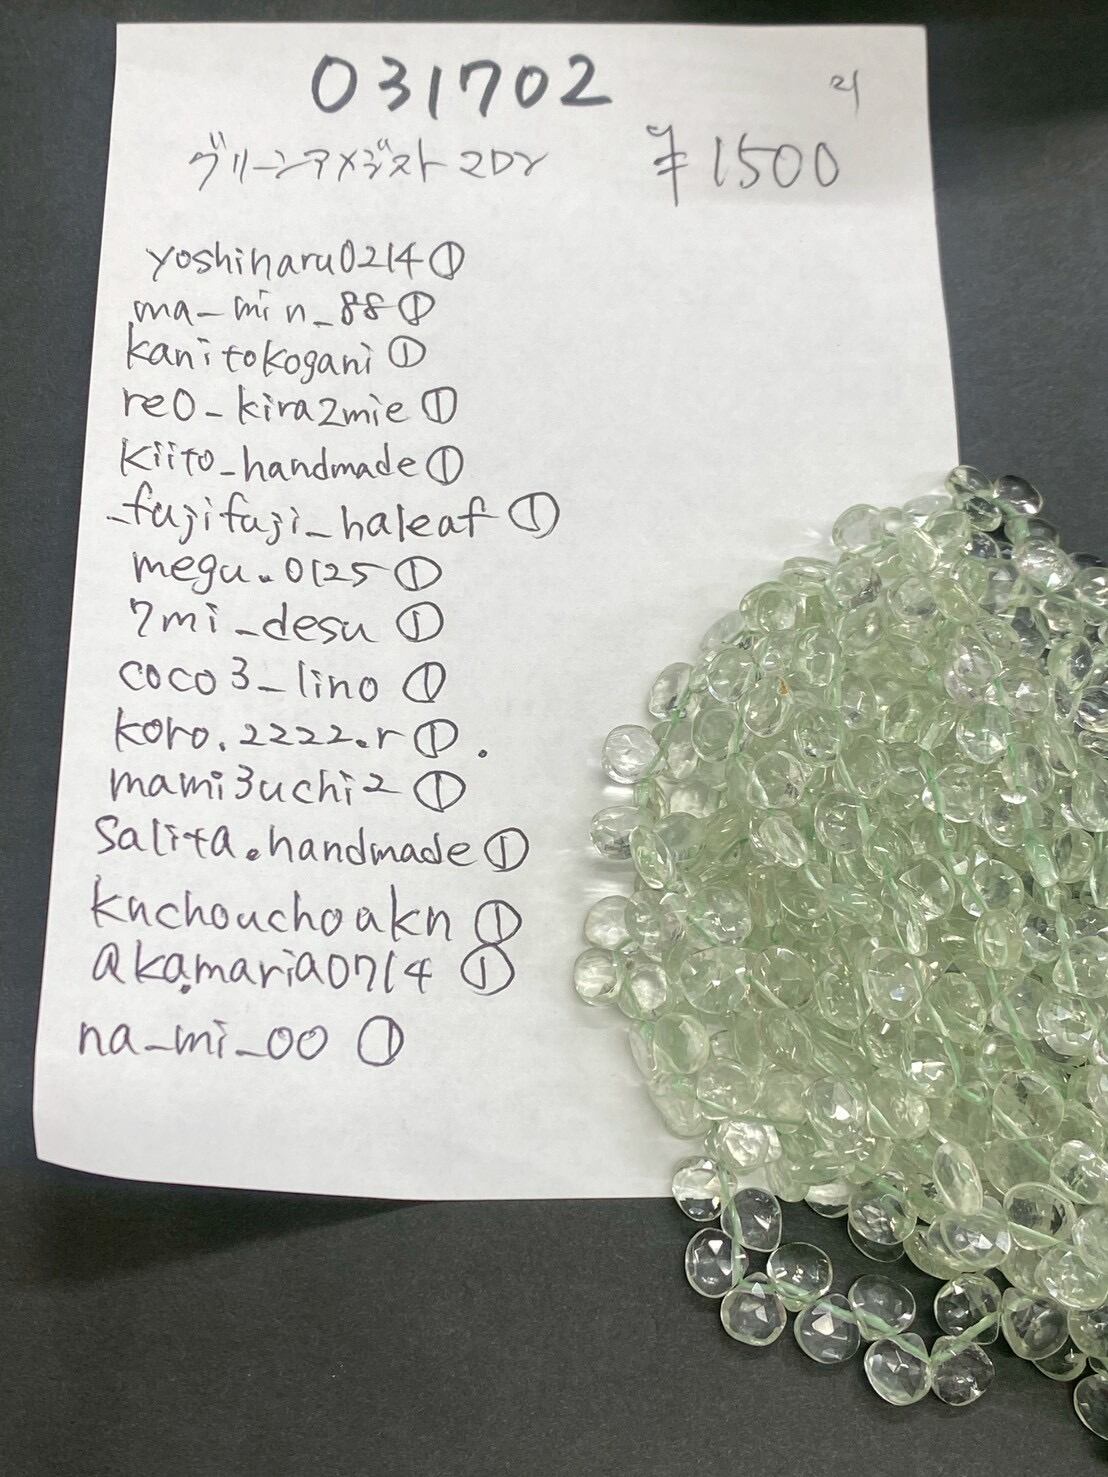 031702
グリーンアメジスト2Dr
¥1500
yoshiharu0214①
ma_min_88①
kanitokogani①
re0_kira2mie①
kiito_handmade①
_fujifuji_haleaf①
megu.0125①
7mi_desu①
coco3_lino①
koro.2222.r①.
mami3uchi2①
salita.handmade①
kuchouchoakn①
akamaria0714①
na_mi_00①